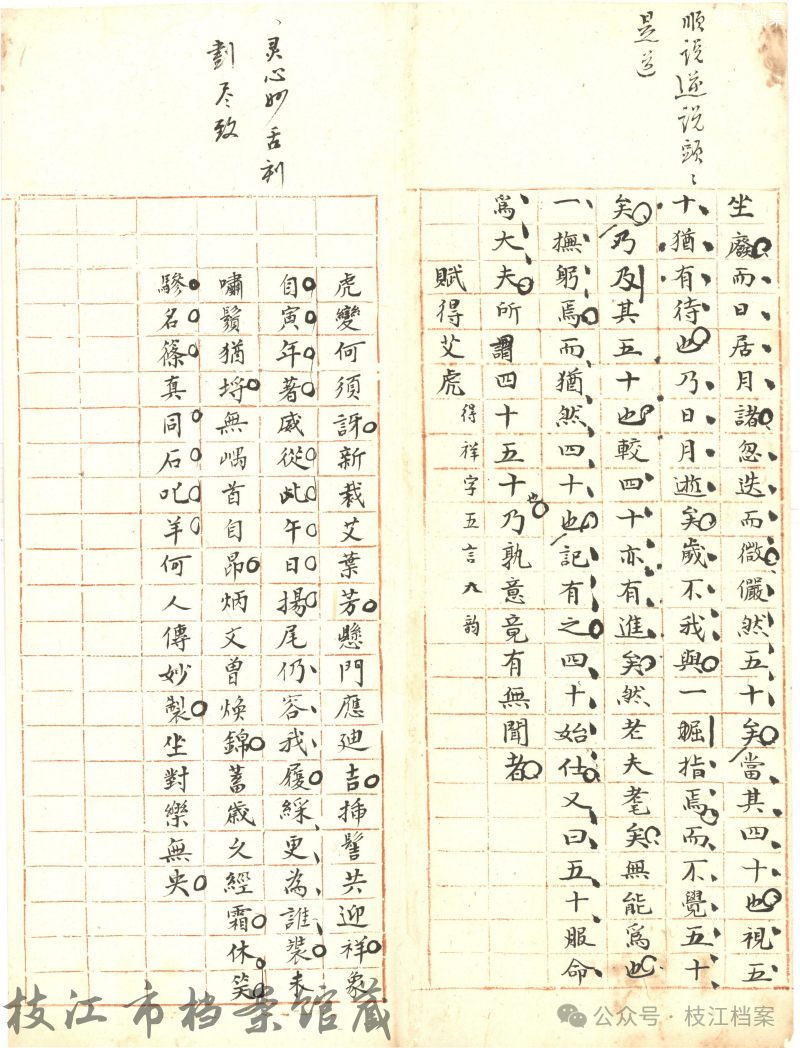 枝江档案
順说逆说頭〻
是道
坐廢而日居月諸忽迭而微儼然五十矣當其四十也視五
十猶有待也乃日月逝矣歲不我與一掘指焉而不覺五十
矣乃及其五十也較四十亦有進矣然老夫耄矣無能爲也
一撫躬焉而猶然四十也記有之四十始仕又曰五十服命
爲大夫所謂四十五十也乃孰意竟有無聞者
賦得艾虎 得祥字五言九韵
灵心妙舌刻
劃尽致
虎變何須訝新栽艾葉芳懸門應迪吉插髻共迎祥象
自寅年著威從此午日揚尾仍容我履綵更為誰裝未
嘯鬚猶埓無嵎首自昂炳文曾煥錦蓄歲久經霜休笑
驂名篠真同石叱羊何人傳妙製坐對樂無央
枝江市档案馆藏
公众号·枝江档案